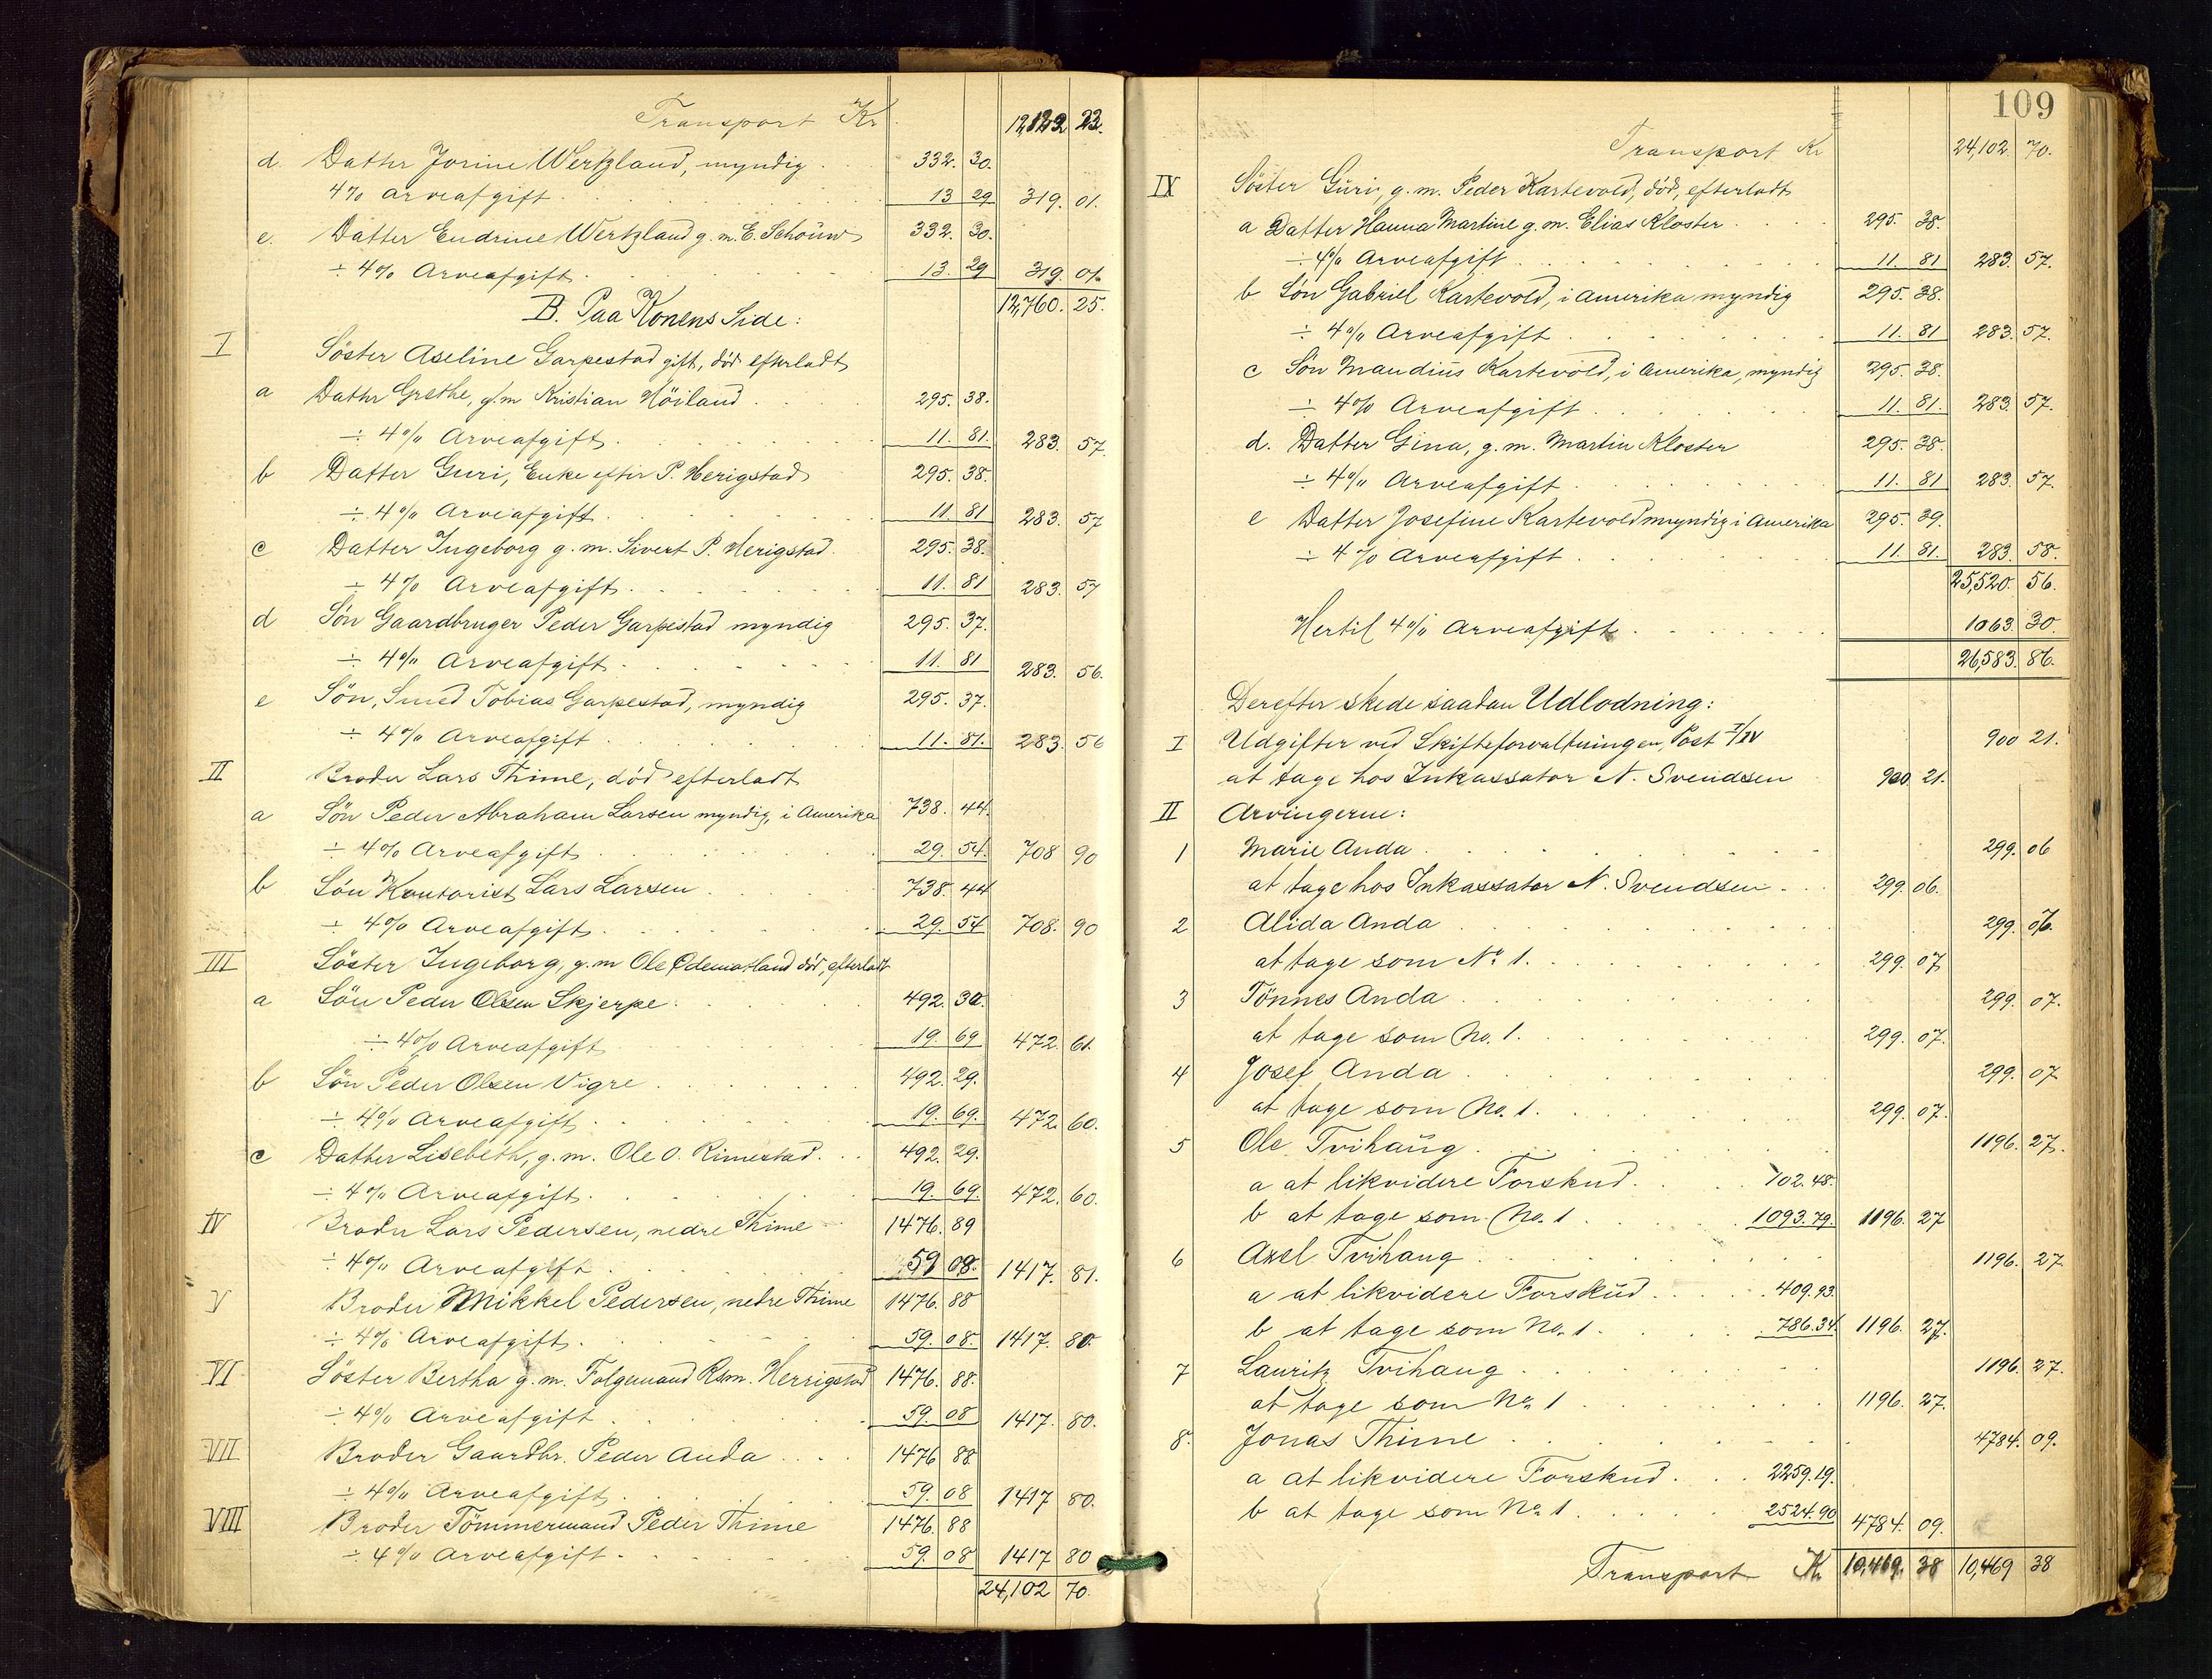 Transport Kr 12,122 23.
d. Datter Jorine Wertzland, myndig 332. 30.
4% Arveafgift 13 29 319. 01.
e. Datter Endrine Wertzland g. m. E. Schouw 332. 30.
÷ 4% Arveafgift 13. 29 319. 01.
12,760. 25.
B. Paa Konens Side:
I Söster Aseline Garpestad gift, död efterladt
a Datter Grethe, g. m Kristian Höiland 295. 38.
÷ 4% Arveafgift 11. 81. 283. 57.
b Datter Guri, Enke efter P. Herigstad 295. 38.
÷ 4% Arveafgift 11 81 283. 57
c Datter Ingeborg g. m. Sivert P. Herigstad 295. 38.
÷ 4% Arveafgift 11. 81 283 57
d Sön Gaardbruger Peder Garpestad myndig 295. 37.
÷ 4% Arveafgift 11. 81 283 56.
e Sön, Smed Tobias Garpestad, myndig 295. 37.
÷ 4% Arveafgift 11. 81. 283. 56
II Broder Lars Thime, död efterladt
a Sön Peder Abraham Larsen myndig, i Amerika 738. 44.
÷ 4% Arveafgift 29. 54. 708 90
b Sön Kontorist Lars Larsen 738. 44
÷ 4% Arveafgift 29. 54 708. 90
III Söster Ingeborg, g. m Ole Ödemotland död, efterladt
a Sön Peder Olsen Skjerpe 492. 30.
÷ 4% Arveafgift 19. 69 472. 61.
b Sön Peder Olsen Vigre 492. 29.
÷ 4% Arveafgift 19. 69. 472. 60.
c Datter Lisebeth, g. m. Ole O. Rimestad 492. 29.
÷ 4% Arveafgift 19. 69. 472. 60.
IV Broder Lars Pedersen, nedre Thime 1476. 89
÷ 4% Arveafgift 59 08. 1417. 81.
V Broder Mikkel Pedersen, nedre Thime 1476. 88
÷ 4% Arveafgift 59. 08. 1417. 80.
VI Söster Bertha g. m. Folgemand Rsm. Herrigstad 1476. 88.
÷ 4% Arveafgift 59. 08 1417. 80.
VII Broder Gaardbr. Peder Anda 1476 88
÷ 4% Arveafgift 59. 08 1417 80.
VIII Broder Tömmermand Peder Thime 1476. 88
÷ 4% Arveafgift 59. 08 1417 80
24,102 70.
109
Transport Kr 24,102. 70.
IX Söster Guri, g. m. Peder Kartevold, död, efterladt
a Datter Hanna Martine g. m. Elias Kloster 295. 38.
÷ 4% Arveafgift 11. 81 283. 57.
b Sön Gabriel Kartevold, i Amerika myndig 295. 38.
÷ 4% Arveafgift 11. 81 283. 57.
c Sön Maudius Kartevold, i Amerika, myndig 295. 38.
÷ 4% Arveafgift 11. 81. 283. 57.
d. Datter Gina, g. m. Martin Kloster 295. 38.
÷ 4% Arveafgift 11. 81 283. 57.
e Datter Josefine Kartevold myndig i Amerika 295. 39.
÷ 4% Arveafgift 11. 81. 283. 58.
25,520. 56.
Hertil 4% Arveafgift 1063. 30.
26,583. 86.
Derefter skede saadan Udlodning:
I Udgifter ved Skifteforvaltningen, Post I/IV 900 21.
at tage hos Inkassator N. Svendsen 900. 21.
II Arvingerne:
1 Marie Anda 299. 06
at tage hos Inkassator N. Svendsen 299. 06.
2 Alida Anda 299. 07.
at tage som No. 1. 299. 07
3 Tönnes Anda 299. 07.
at tage som No. 1. 299. 07.
4 Josef Anda 299. 07
at tage som No. 1. 299. 07.
5 Ole Tvihaug 1196. 27.
a at likvidere Forskud 102. 48.
b at tage som No. 1 1093. 79. 1196. 27
6 Axel Tvihaug 1196. 27
a at likvidere Forskud 409. 93.
b at tage som No. 1 786. 34. 1196. 27.
7 Lauritz Tvihaug 1196. 27.
at tage som No. 1 1196. 27.
8. Jonas Thime 4784. 09.
a at likvidere Forskud 2259. 19.
b at tage som No. 1 2524. 90 4784. 09.
Transport Kr 10,469. 38 10,469 38